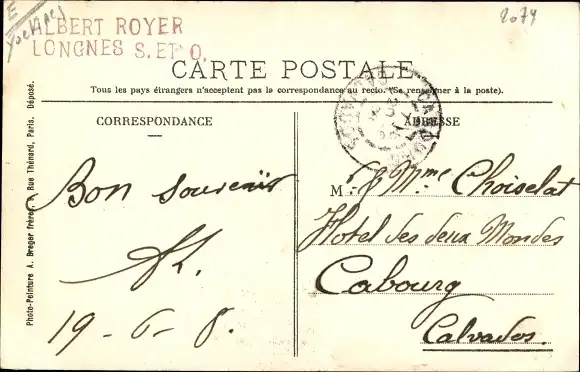 E
Yvelines
2074
ALBERT ROYER
LONGNES S. ET O.
CARTE POSTALE
Tous les pays étrangers n'acceptent pas la correspondance au recto. (Se renseigner à la poste).
CORRESPONDANCE
ADRESSE
Bon souvenir
19-6-8.
M. & Mme Choiselat
Hotel des deux Mondes
Cabourg
Calvados.
Photo-Peinture A. Breger frères, 9, Rue Thénard, Paris. Déposé.